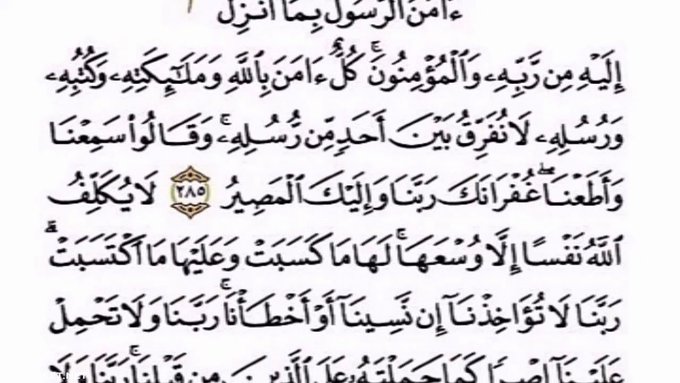 ءَامَنَ ٱلرَّسُولُ بِمَآ أُنزِلَ
إِلَيْهِ مِن رَّبِّهِۦ وَٱلْمُؤْمِنُونَ ۚ كُلٌّ ءَامَنَ بِٱللَّهِ وَمَلَـٰٓئِكَتِهِۦ وَكُتُبِهِۦ
وَرُسُلِهِۦ لَا نُفَرِّقُ بَيْنَ أَحَدٍ مِّن رُّسُلِهِۦ ۚ وَقَالُوا۟ سَمِعْنَا
وَأَطَعْنَا ۖ غُفْرَانَكَ رَبَّنَا وَإِلَيْكَ ٱلْمَصِيرُ ٢٨٥ لَا يُكَلِّفُ
ٱللَّهُ نَفْسًا إِلَّا وُسْعَهَا ۚ لَهَا مَا كَسَبَتْ وَعَلَيْهَا مَا ٱكْتَسَبَتْ ۗ
رَبَّنَا لَا تُؤَاخِذْنَآ إِن نَّسِينَآ أَوْ أَخْطَأْنَا ۚ رَبَّنَا وَلَا تَحْمِلْ
عَلَيْنَآ إِصْرًا كَمَا حَمَلْتَهُۥ عَلَى ٱلَّذِينَ مِن قَبْلِنَا ۚ رَبَّنَا وَلَا